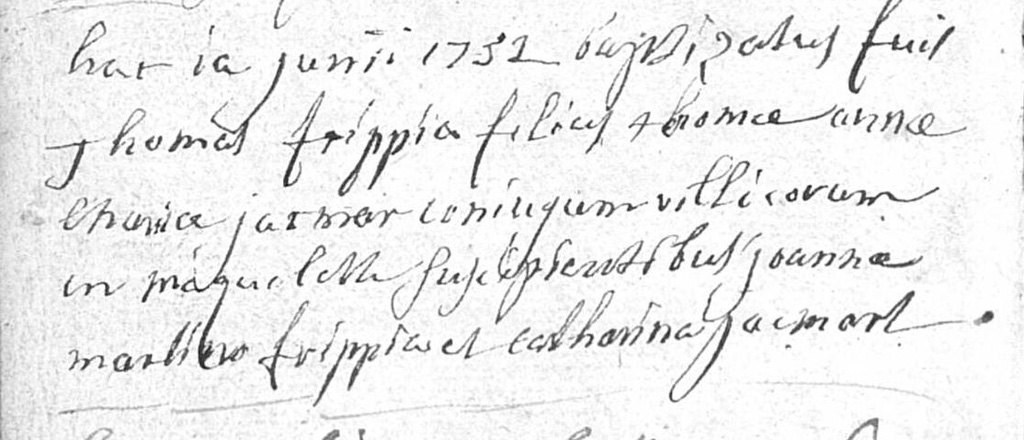 hac ia junii 1732 baptizatus fuit
thomas frippia filius thomæ annæ
jacmar coniugum villicorum
in maquelette suscipientibus joanne
martino frippia et catharina jacmart